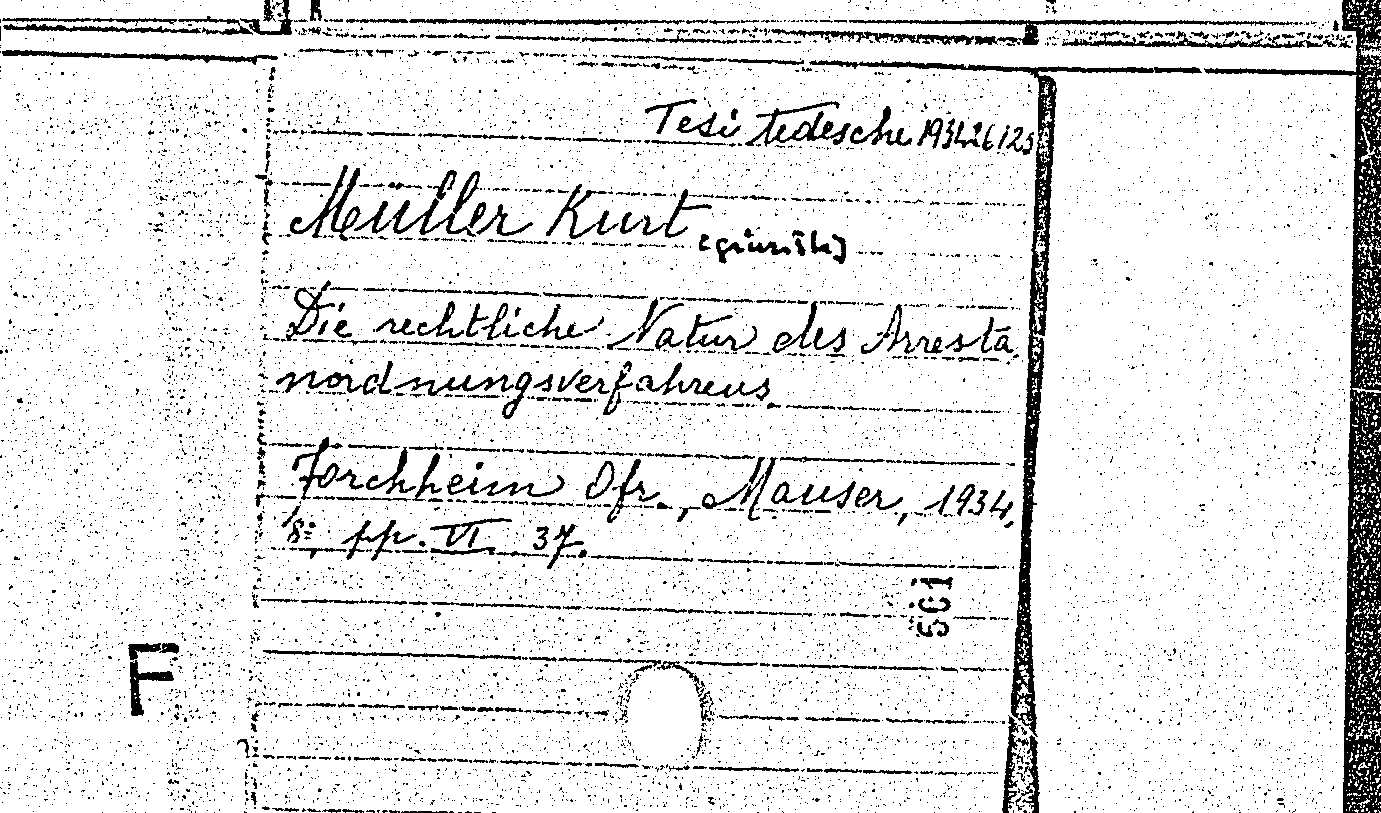 Tesi tedesche 1934 26/125
Müller Kurt [giurista]
Die rechtliche Natur des Arresta
nordnungsverfahrens.
Forchheim Ofr., Mauser, 1934,
8º, pp. VI. 37.
501
F